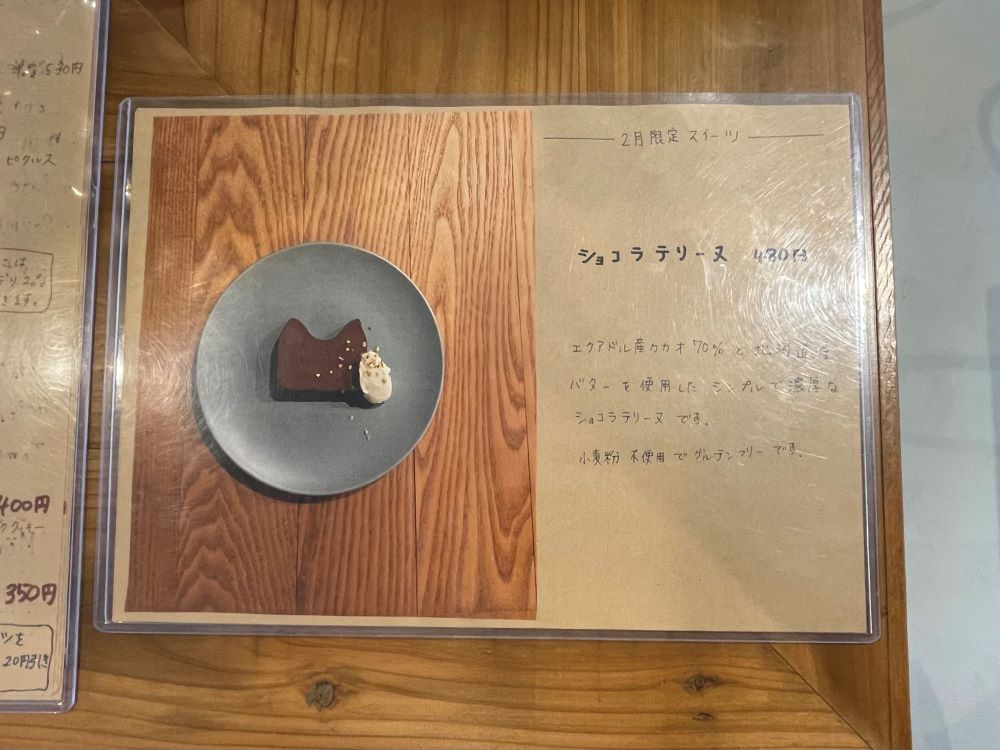 2月限定スイーツ
ショコラテリーヌ 480円
エクアドル産カカオ70%と北海道産
バターを使用したシンプルで濃厚な
ショコラテリーヌです。
小麦粉不使用でグルテンフリーです。
ピクルス
400円
350円
20円引き